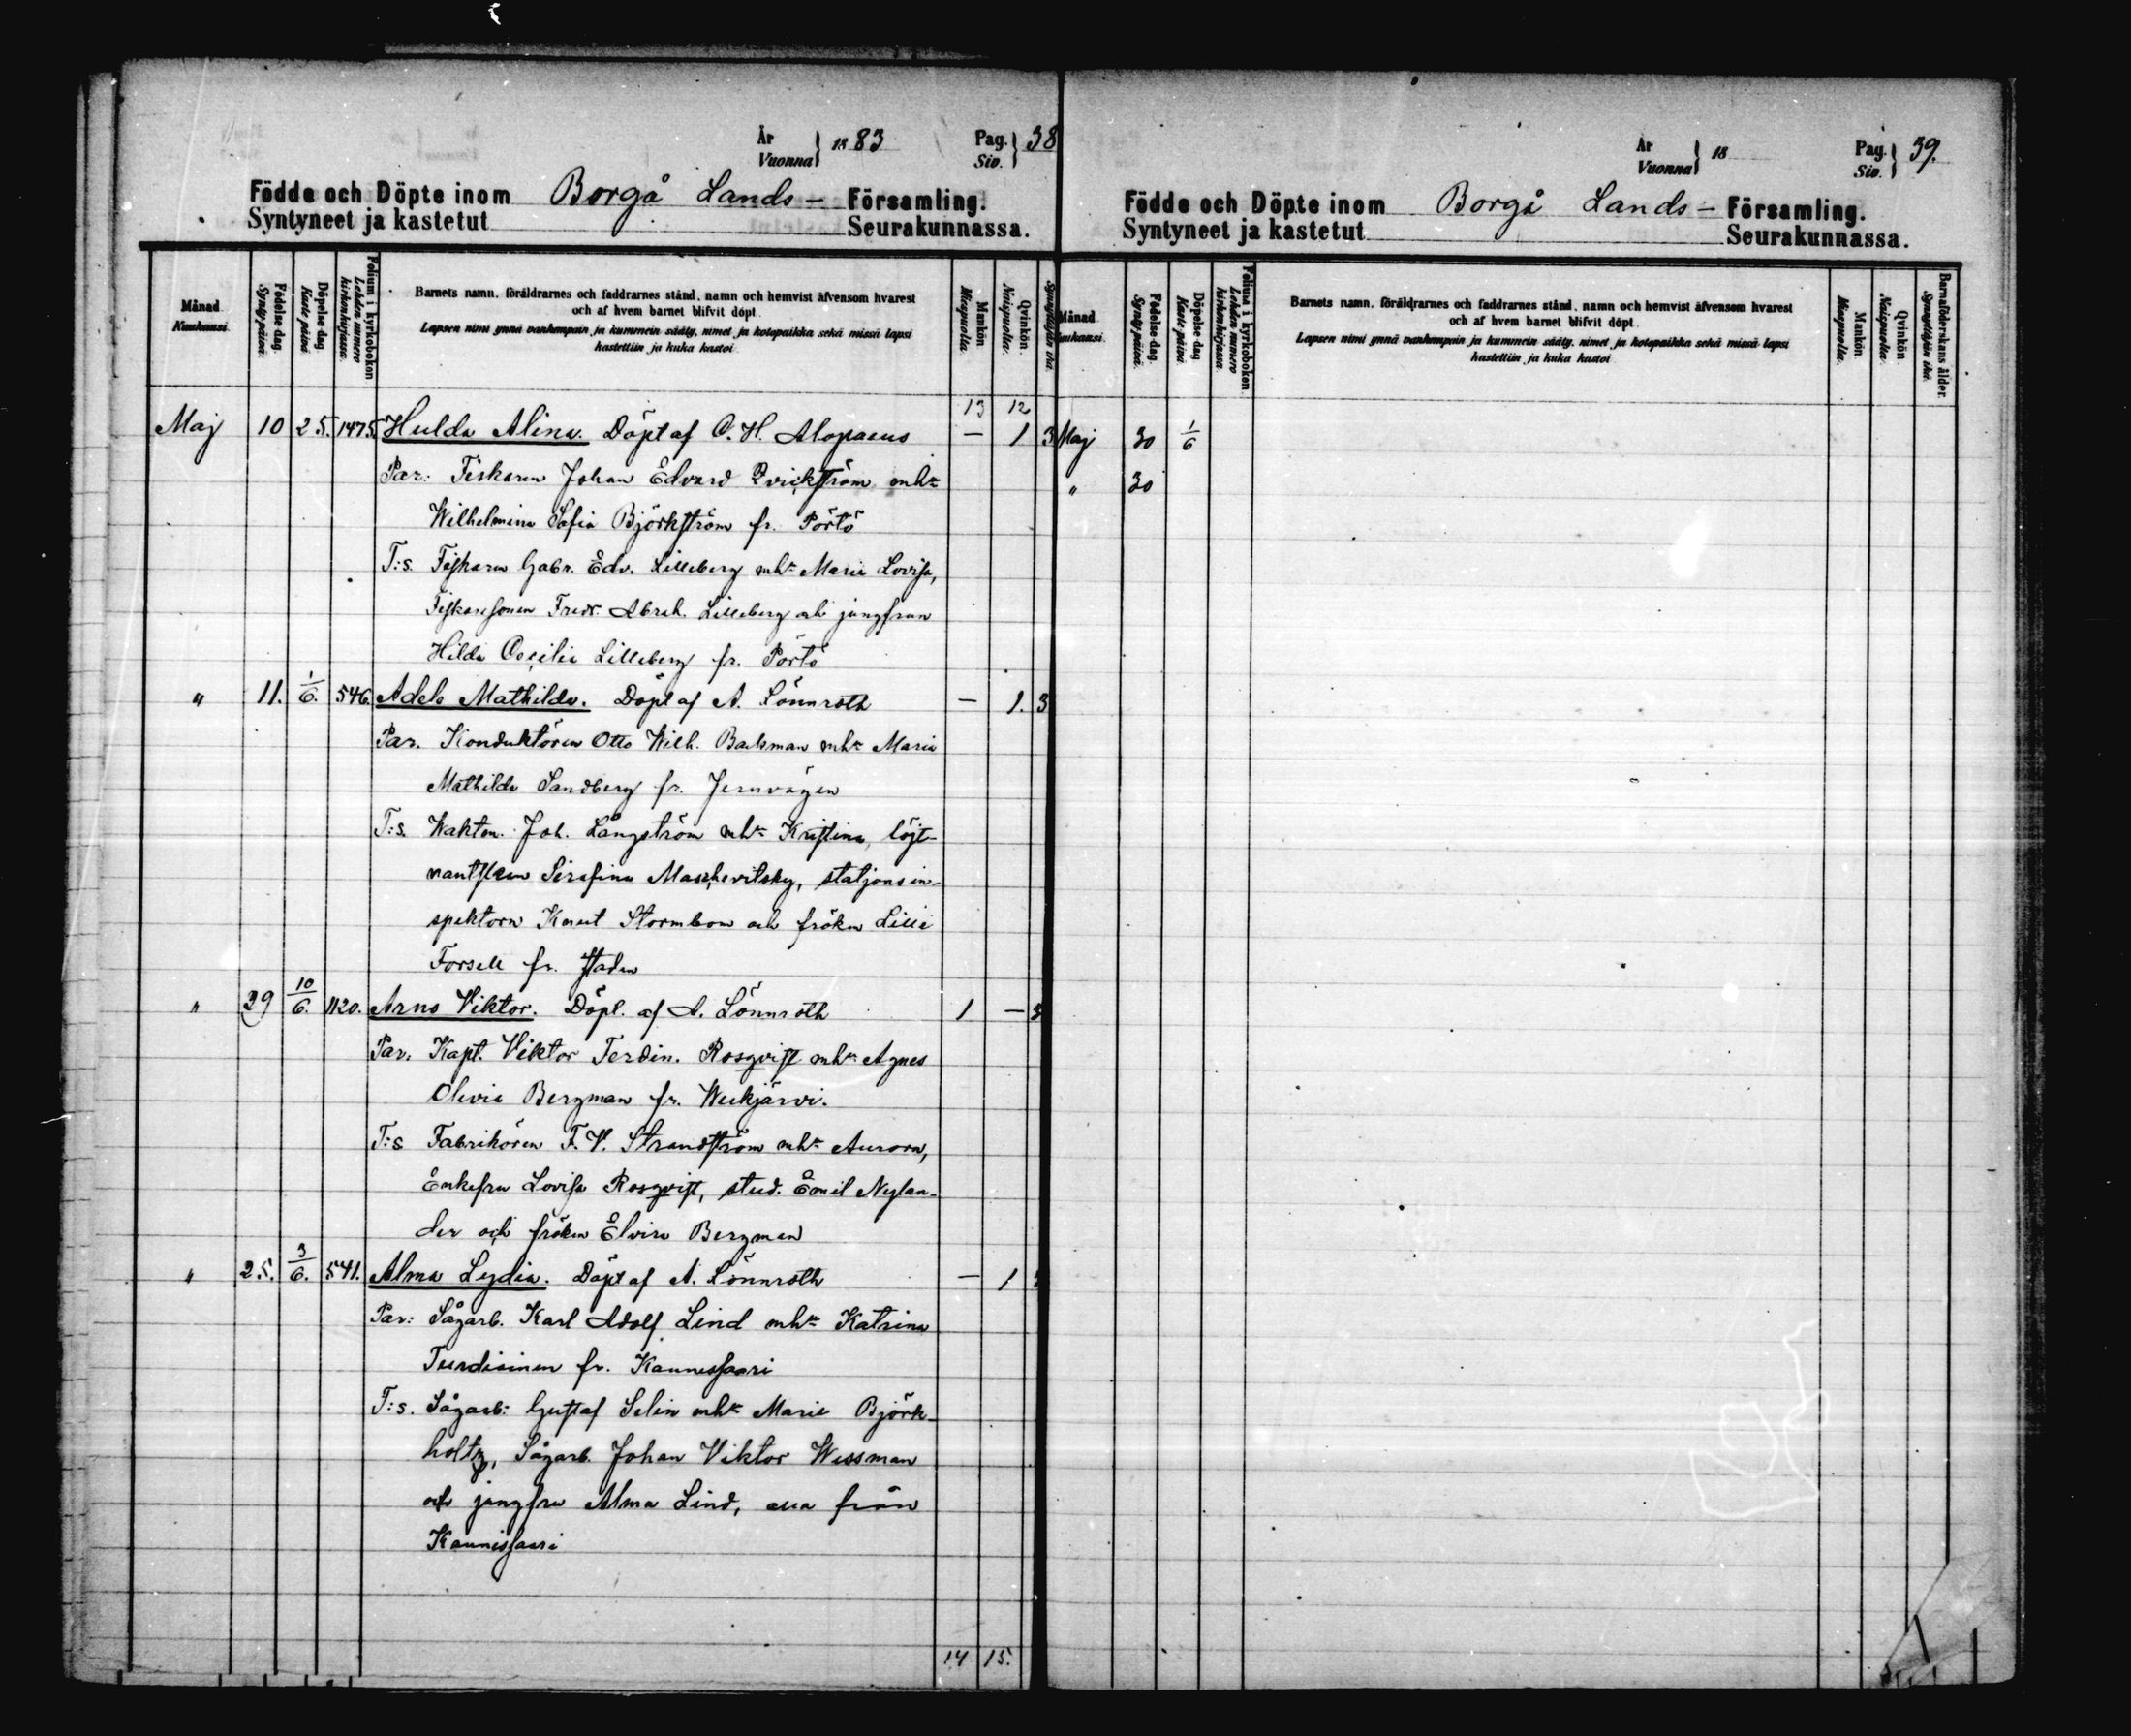 År
Vuonna } 1883 Pag.
Siv. } 38
Födde och Döpte inom Borgå Lands- Församling.
Syntyneet ja kastetut Seurakunnassa.
Månad
Kuukausi.
Födelse-dag.
Synty päivä.
Döpelse-dag
Kaste päivä.
Folium i kyrkoboken
Lehden numero kirkonkirjassa.
Barnets namn, föräldrarnes och faddrarnes stånd, namn och hemvist äfvensom hvarest
och af hvem barnet blifvit döpt.
Lapsen nimi ynnä vanhempain ja kummein sääty, nimet ja kotopaikka sekä missä lapsi
kastettiin ja kuka kastoi.
Mankön
Miespuolta.
Qvinkön.
Naispuolta.
13 12
Maj 10 25. 1475. Hulda Alina. Döpt af C. H. Alopaeus — 1 3
Par: Fiskaren Johan Edvard Qvickström mhu
Wilhelmina Sofia Björkström fr. Pörtö
T:s. Fiskaren Gabr. Edv. Lilleberg mhu Maria Lovisa,
Fiskaresonen Fredr. Abrah. Lilleberg och jungfrun
Hilda Cecilia Lilleberg fr. Pörtö
" 11. 1/6. 546. Adele Mathilda. Döpt af A. Lönnroth — 1. 3
Par. Konduktören Otto Wilh. Backman mhu Maria
Mathilda Sandberg fr. Jernvägen
T:s. Vakten Joh. Långström mhu Kristina, löjt-
nantskan Serafina Maschevitsky, stationsin-
spektorn Knut Stormbom och fröken Lilli
Forsell fr. staden
" 29 10/6. 1120. Arno Viktor. Döpt. af A. Lönnroth 1 —
Par. Kapt. Viktor Ferdin. Rosqvist mhu Agnes
Olivia Bergman fr. Weckjärvi.
T:s Fabrikören F. V. Strandström mhu Aurora,
Enkefru Lovisa Rosqvist, stud. Emil Nylan-
der och fröken Elvira Bergman
" 25. 3/6. 541. Alma Lydia. Döpt af A. Lönnroth — 1
Par: Sågarb. Karl Adolf Lind mhu Katrina
Turdiainen fr. Kaunissaari
T:s. Sågarb: Gustaf Selin mhu Maria Björk-
holtz, Sågarb. Johan Viktor Wessman
och jungfru Alma Lind, alla från
Kaunissaari
14 15.
År
Vuonna } 18 Pag.
Siv. } 39.
Födde och Döpte inom Borgå Lands- Församling.
Syntyneet ja kastetut Seurakunnassa.
Månad
Födelse-dag.
Synty päivä.
Döpelse-dag
Kaste päivä.
Folium i kyrkoboken.
Lehden numero kirkonkirjassa.
Barnets namn, föräldrarnes och faddrarnes stånd, namn och hemvist äfvensom hvarest
och af hvem barnet blifvit döpt.
Lapsen nimi ynnä vanhempain ja kummein sääty, nimet ja kotopaikka sekä missä lapsi
kastettiin ja kuka kastoi
Mankön
Miespuolta.
Qvinkön.
Naispuolta.
Barnaföderskans ålder.
Synnyttäjän ikä.
Maj 30 1/6
" 30